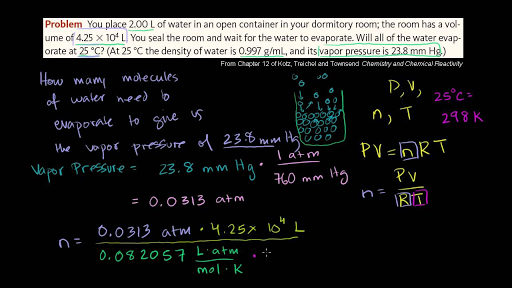 Problem You place 2.00 L of water in an open container in your dormitory room; the room has a vol-
ume of 4.25 × 10⁴ L. You seal the room and wait for the water to evaporate. Will all of the water evap-
orate at 25 °C? (At 25 °C the density of water is 0.997 g/mL, and its vapor pressure is 23.8 mm Hg.)
From Chapter 12 of Kotz, Treichel and Townsend Chemistry and Chemical Reactivity
How many molecules
of water need to
evaporate to give us
the vapor pressure of 23.8 mm Hg
P, V,
n, T
25°C =
298 K
PV = nRT
n = PV / RT
Vapor Pressure = 23.8 mm Hg · 1 atm / 760 mm Hg
= 0.0313 atm
n = 0.0313 atm · 4.25 × 10⁴ L
0.082057 L·atm / mol·K ·